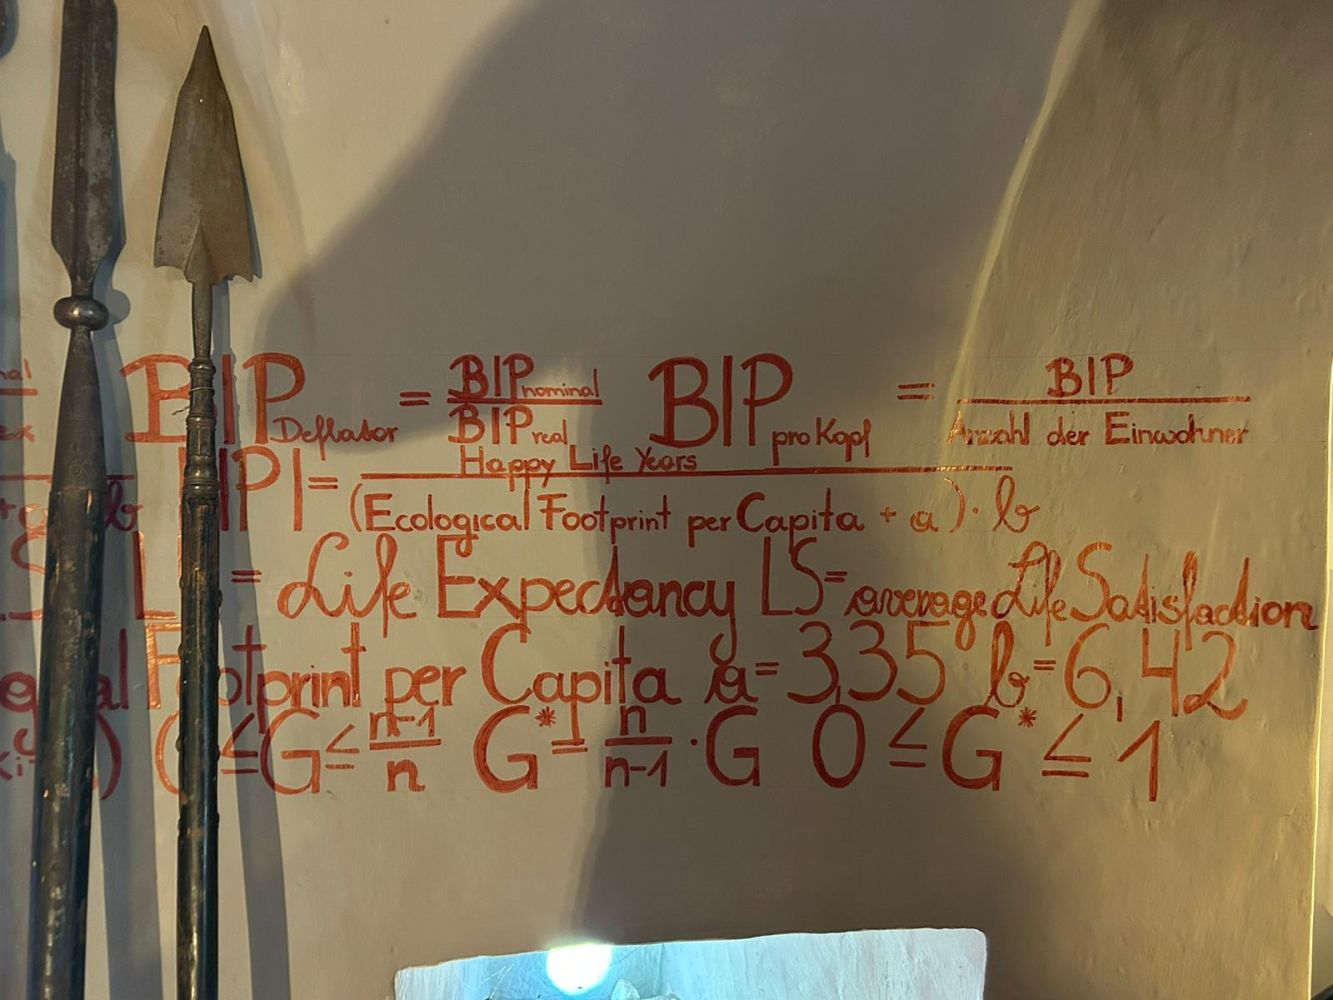 BIP Deflator = BIP nominal / BIP real BIP pro Kopf = BIP / Anzahl der Einwohner
HPI = Happy Life Years / (Ecological Footprint per Capita + a) · b
= Life Expectancy LS = average Life Satisfaction
Footprint per Capita a = 3,35 b = 6,42
≤ G ≤ n-1 / n G* = n / n-1 · G 0 ≤ G* ≤ 1